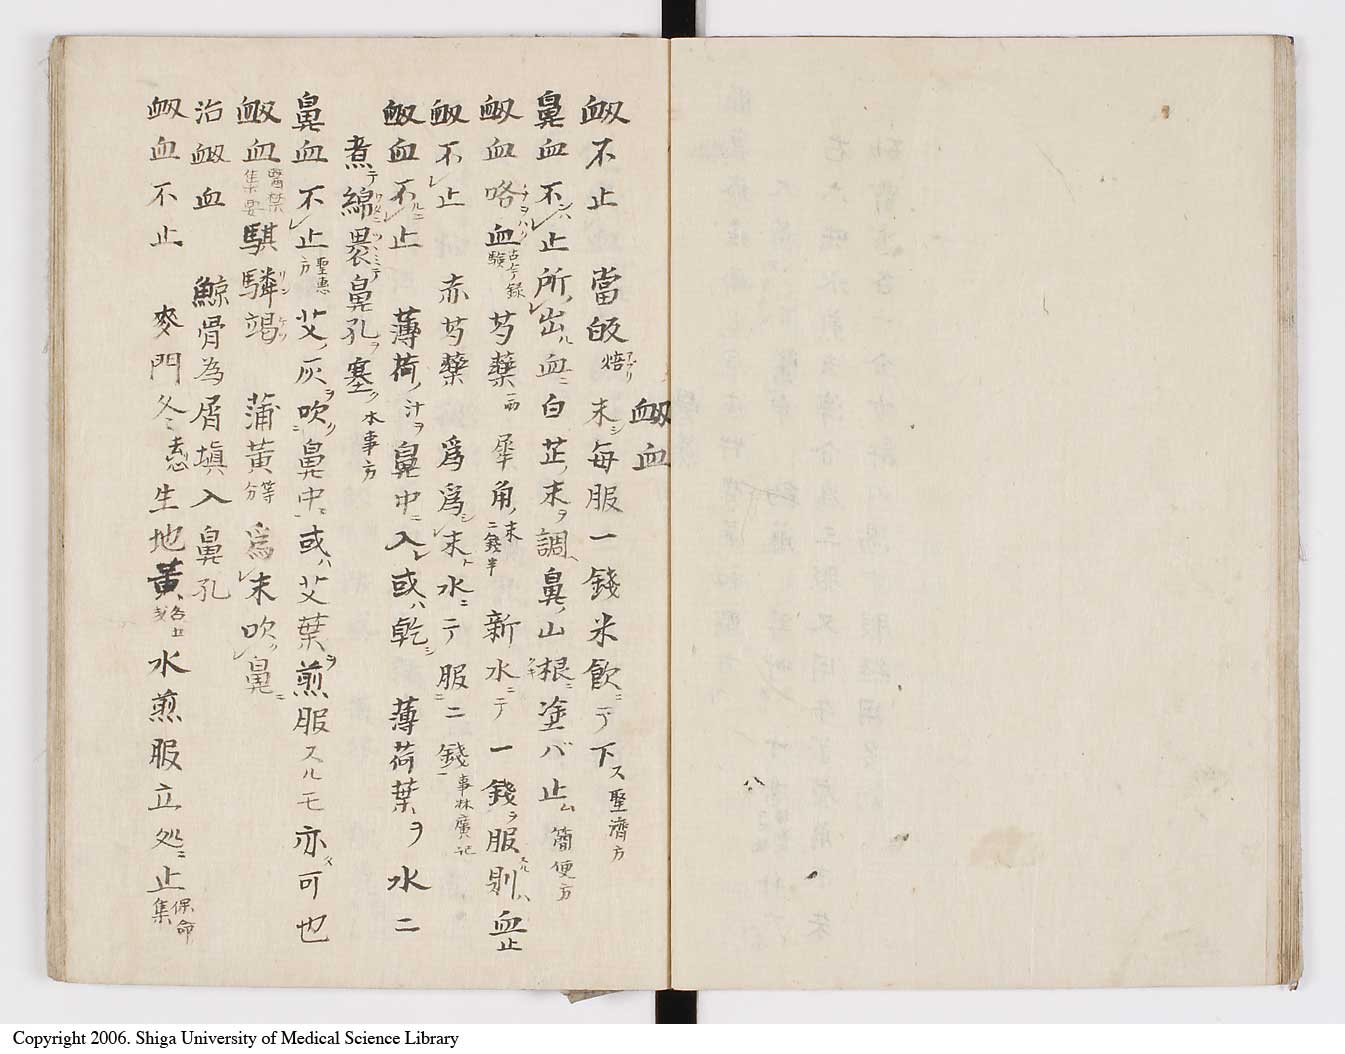 衂血
衂不止 當皈焙アブリ末シ每服一錢米飲ニテ下ス聖濟方
鼻血不レ止シハ所ノレ出ル血ニ白芷ノ末ヲ調ヘ鼻ノ山根ニ塗バ止ム簡便方
衂血咯血古今錄驗 芍藥一兩 犀角ノ末二錢半 新水ニテ一錢ヲ服スル則ハ血止
衂不レ止 赤芍藥 爲爲シレ末ト水ニテ服ニ二錢一事林廣記
衂血不ルニレ止 薄荷ノ汁ヲ鼻中ニ入レ或ハ乾シ 薄荷葉ヲ水二
煮テ綿ニツヽミテ裹鼻孔ヲ塞ク本事方
鼻血不レ止聖惠方 艾ノ灰ヲ吹クニ鼻中ニ或ハ艾葉ヲ煎服スルモ亦タ可也
衂血醫禁集要 騏驎竭リンケツ 蒲黃等分 爲レ末吹クレ鼻ニ
治衂血 鯨骨為屑填入鼻孔
衂血不止 麥門冬去心 生地黃各五戔 水煎服立処ニ止保命集
Copyright 2006. Shiga University of Medical Science Library